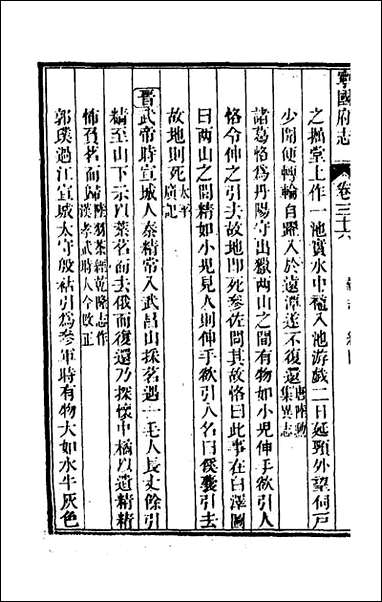 寧國府志　卷三十六
之擂堂上作一池實水中龍入池游戲二日延頸外望伺戶
少開便轉輪自躍入於遠潭遂不復還唐陸勳集異志
諸葛恪爲丹陽守出獵兩山之間有物如小兒伸手欲引人
恪令伸之引去故地即死參佐問其故恪曰此事在白澤圖
曰兩山之間精如小兒見人則伸手欲引人名曰傒囊引去
故地則死太平廣記
晉武帝時宣城人秦精常入武昌山採茗遇一毛人長丈餘引
精至山下示以叢茗而去俄而復還乃探懷中橘以遺精精
怖負茗而歸陸羽茶經乾隆志作漢孝武時人今改正
郭璞過江宣城太守殷祐引爲參軍時有物大如水牛灰色